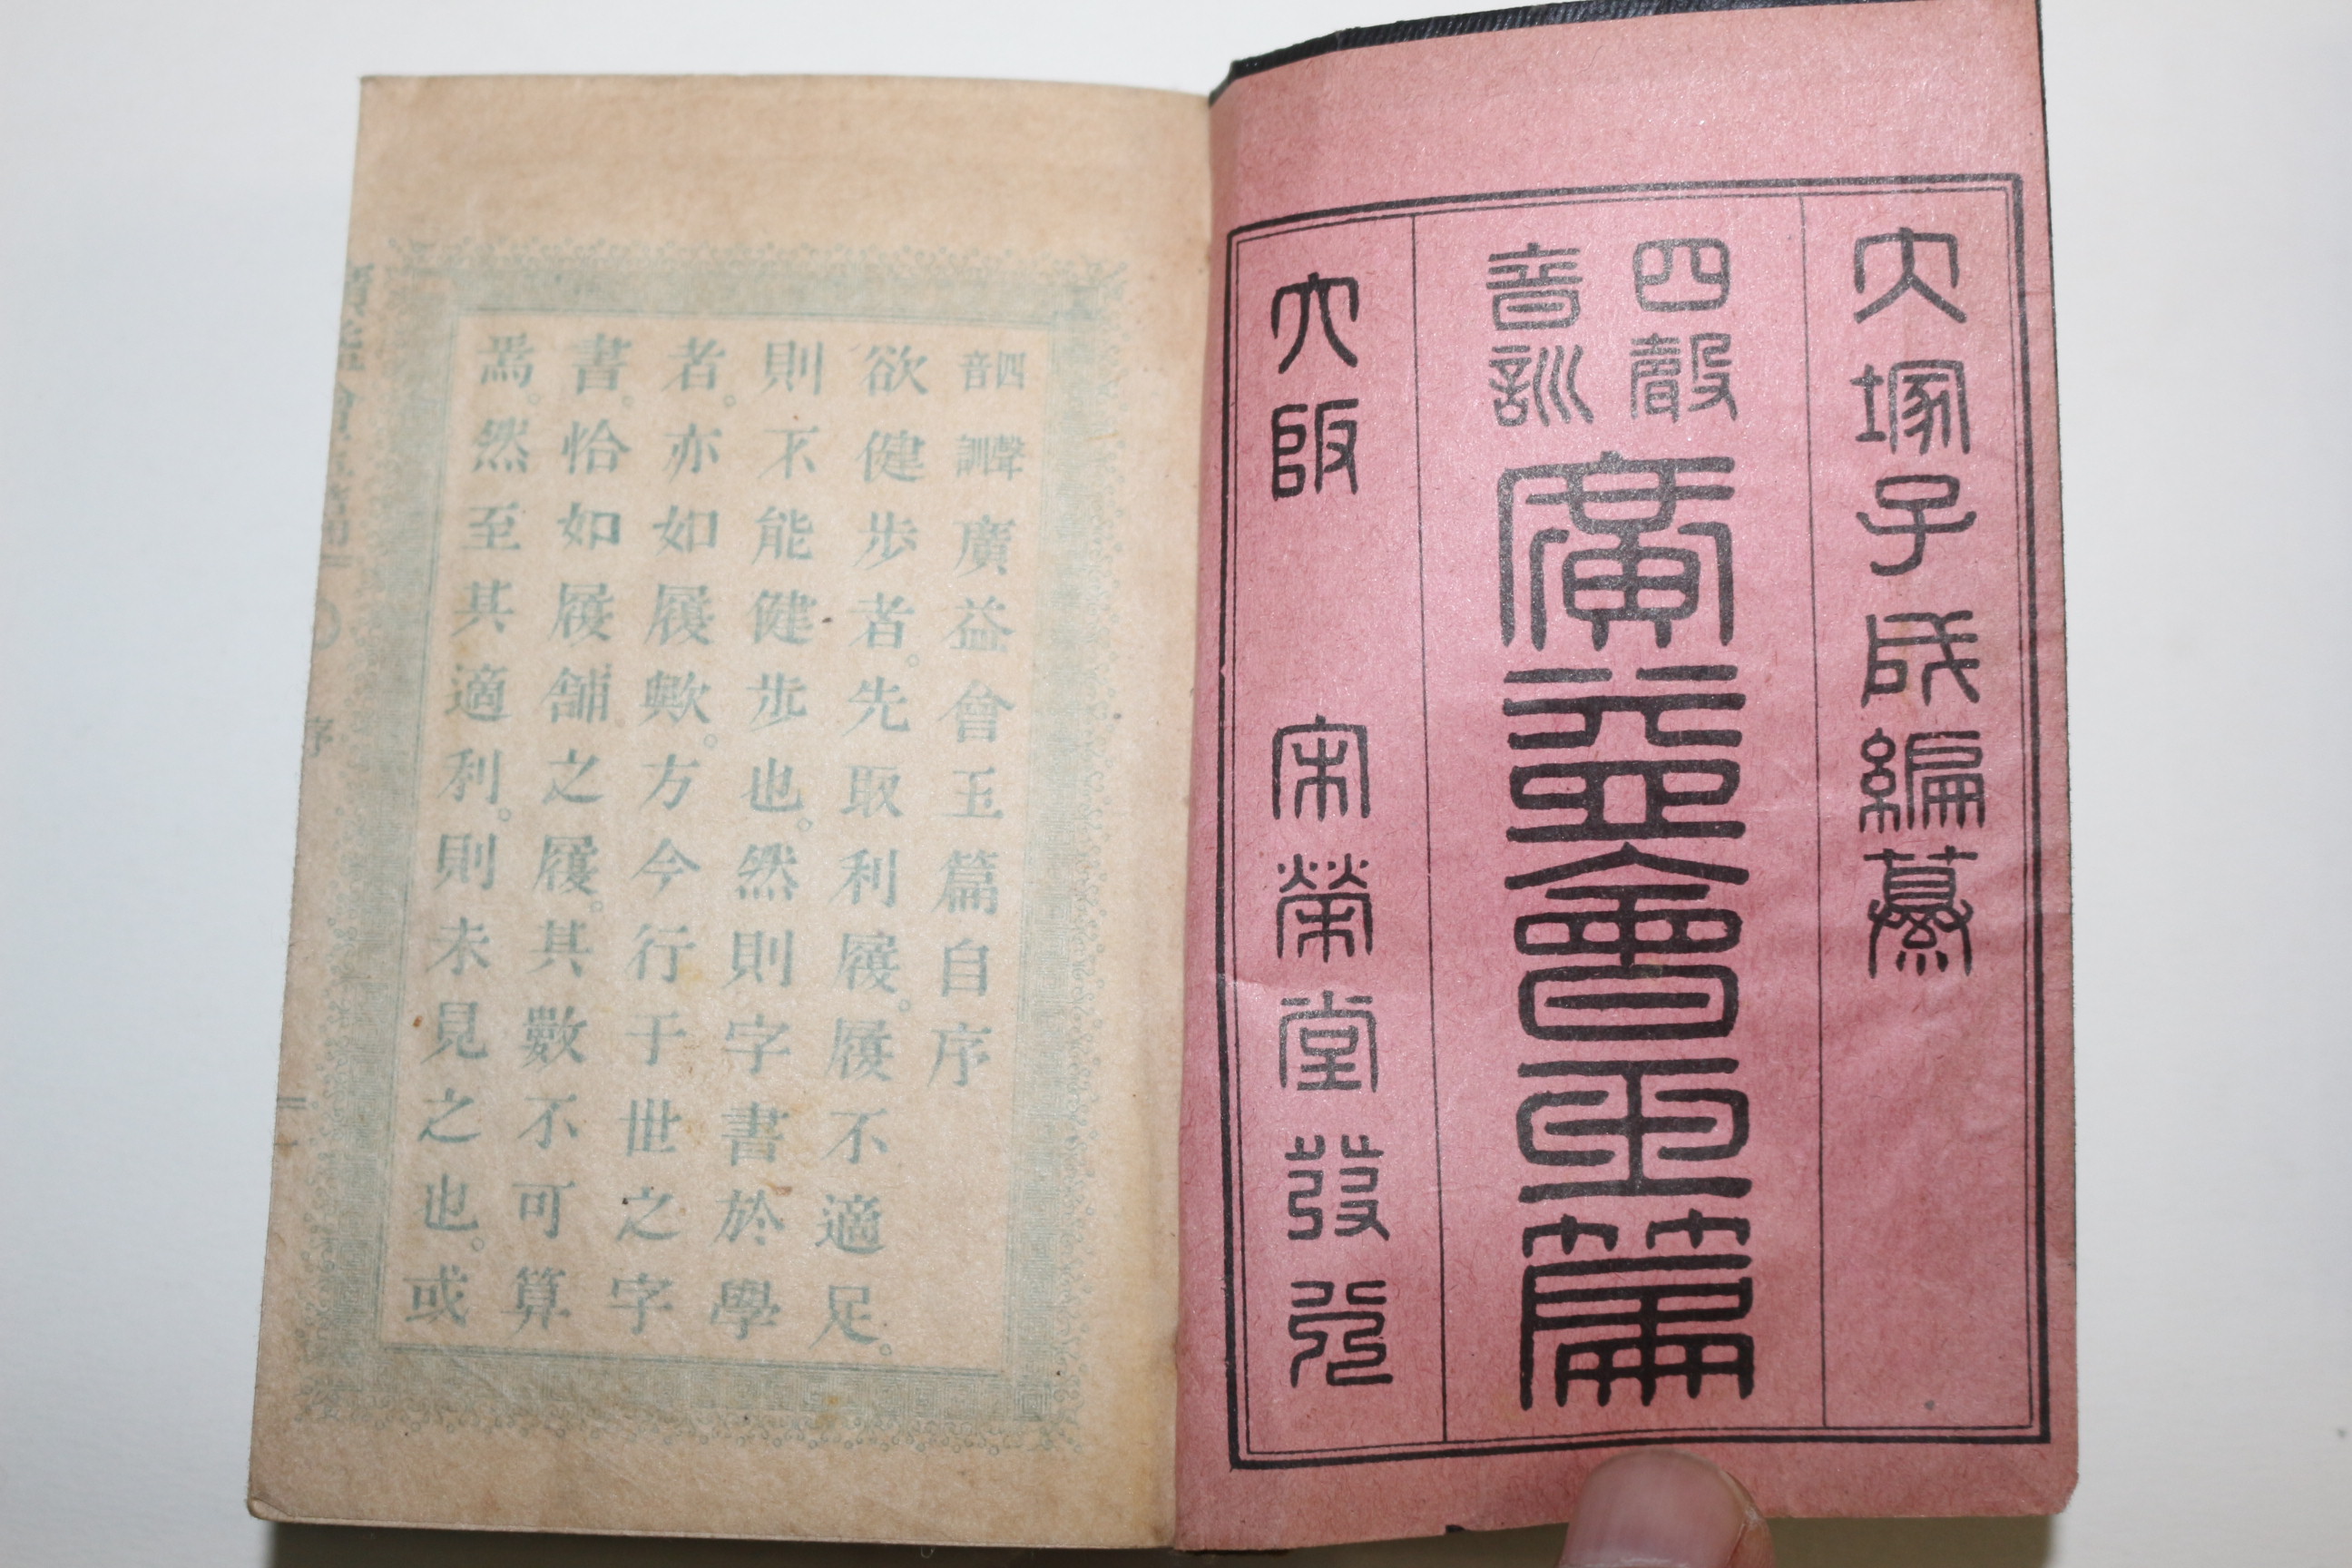 大塚子成編纂
四聲
音訓
廣益會玉篇
大阪 宋榮堂發兌
四聲
音訓
廣益會玉篇自序
欲健步者。先取利屐。屐不適足。
則不能健步也。然則字書於學
者。亦如屐歟。方今行于世之字
書。恰如屐舖之屐。其數不可算
焉。然至其適利。則未見之也。或
序